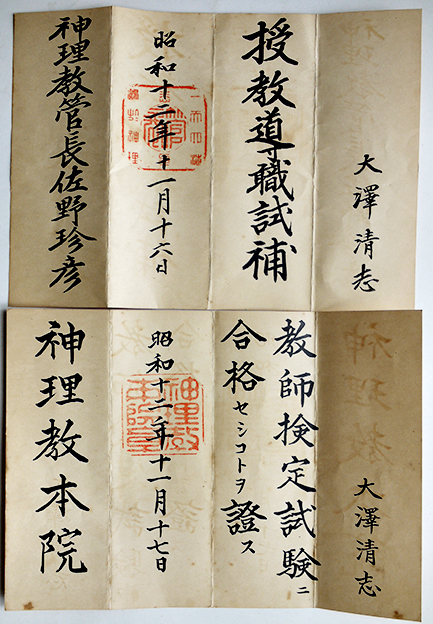 大澤清志
授教導職試補
昭和十二年十一月十六日
神理教管長佐野珍彦
大澤清志
教師検定試験ニ
合格セシコトヲ證ス
昭和十二年十一月十七日
神理教本院
神理教
本院章